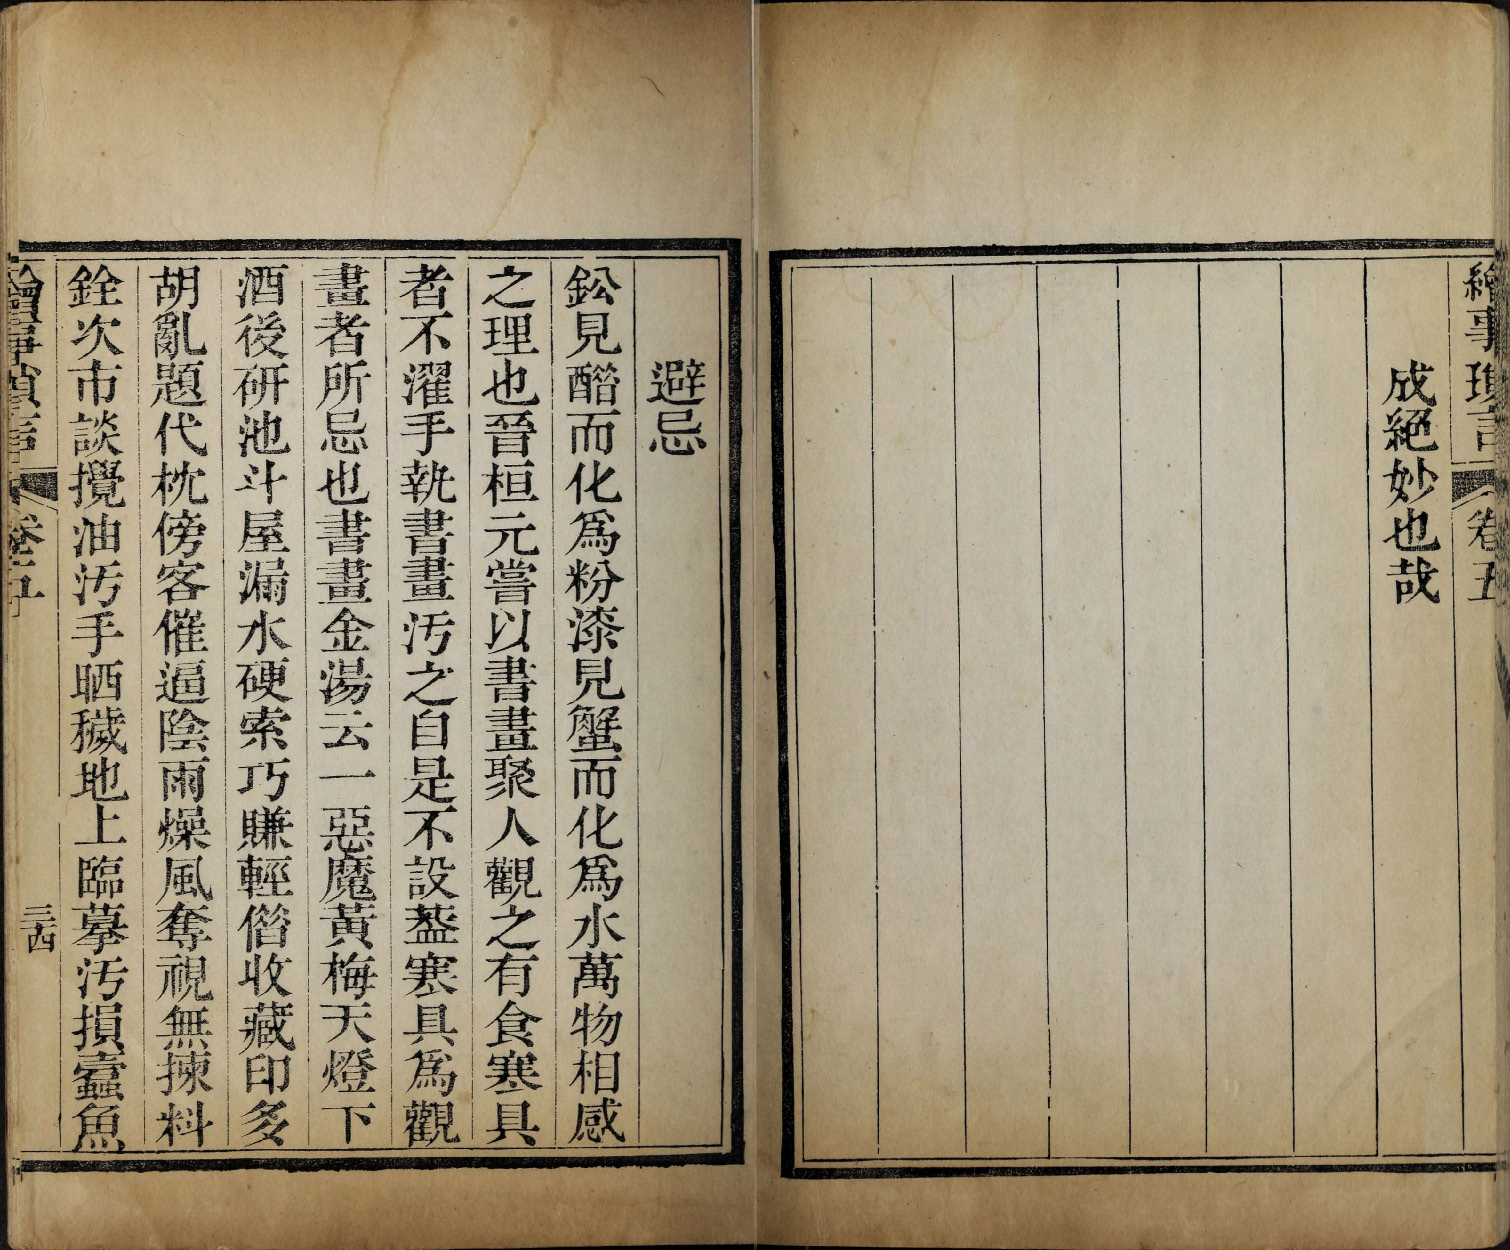 繪事瑣言 卷五
成絕妙也哉
避忌
鈆見醋而化為粉漆見蟹而化為水萬物相感
之理也晉桓元嘗以書畫聚人觀之有食寒具
者不濯手執書畫汚之自是不設葢寒具為觀
畫者所忌也書畫金湯云一惡魔黃梅天燈下
酒後研池斗屋漏水硬索巧賺輕借收藏印多
胡亂題代枕傍客催逼陰雨燥風奪視無揀料
銓次市談攪油汚手晒穢地上臨摹汚損蠹魚
繪事瑣言 卷五 三四